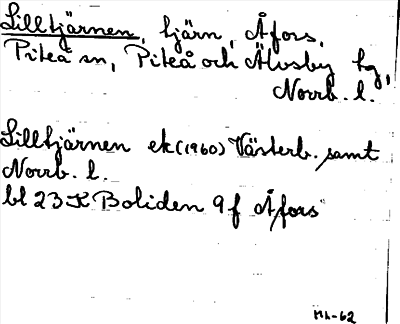 Lilltjärnen, tjärn, Åfors,
Piteå sn, Piteå och Älvsby tg,
Norrb. l.
Lilltjärnen ek (1960) Västerb. samt
Norrb. l.
bl 23 K Boliden 9 f Åfors
ML-62